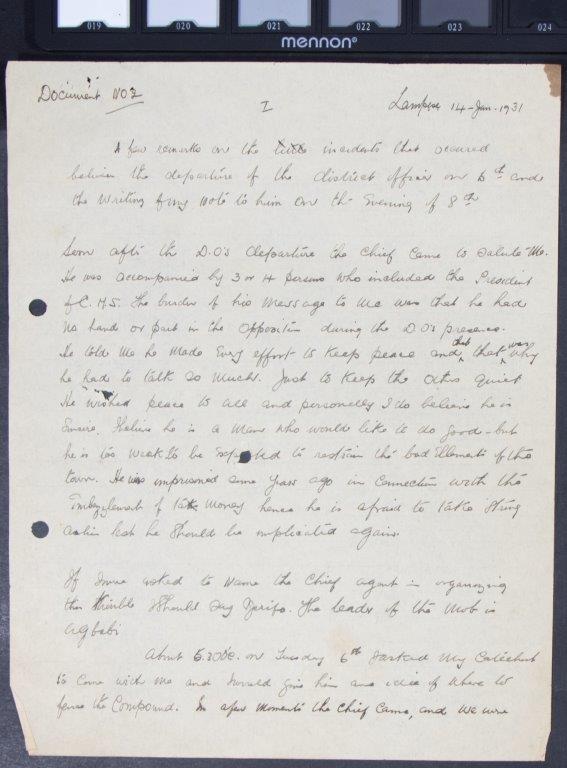 019 020 021 022 023 024
mennon®
Document No 2
I
14-Jan. 1931
A few remarks on the incidents that occured
between the departure of the district officer on 6th and
the writing of my note to him on the Evening of 8th
Soon after the D.O's departure the Chief came to salute me.
He was accompanied by 3 or 4 persons who included the President
of C.M.S. The burden of his message to me was that he had
no hand or part in the opposition during the D.O's presence.
He told me he made every effort to keep peace and that that was why
he had to talk so much. Just to keep the others quiet
He wished peace to all and personally I do believe he is
sincere. I believe he is a man who would like to do good - but
he is too weak to be expected to restrain the bad Ellements of the
town. He was imprisoned some years ago in connection with the
Embezzlement of tax money hence he is afraid to take strong
action lest he should be implicated again.
If I were asked to name the chief agent in organizing
this trouble I should say. The leader of the mob is
Agbabi
About 5.30 on Tuesday 6th I asked my Catechist
to come with me and I would give him an idea of where to
fence the Compound. In a few moments the Chief came, and we were